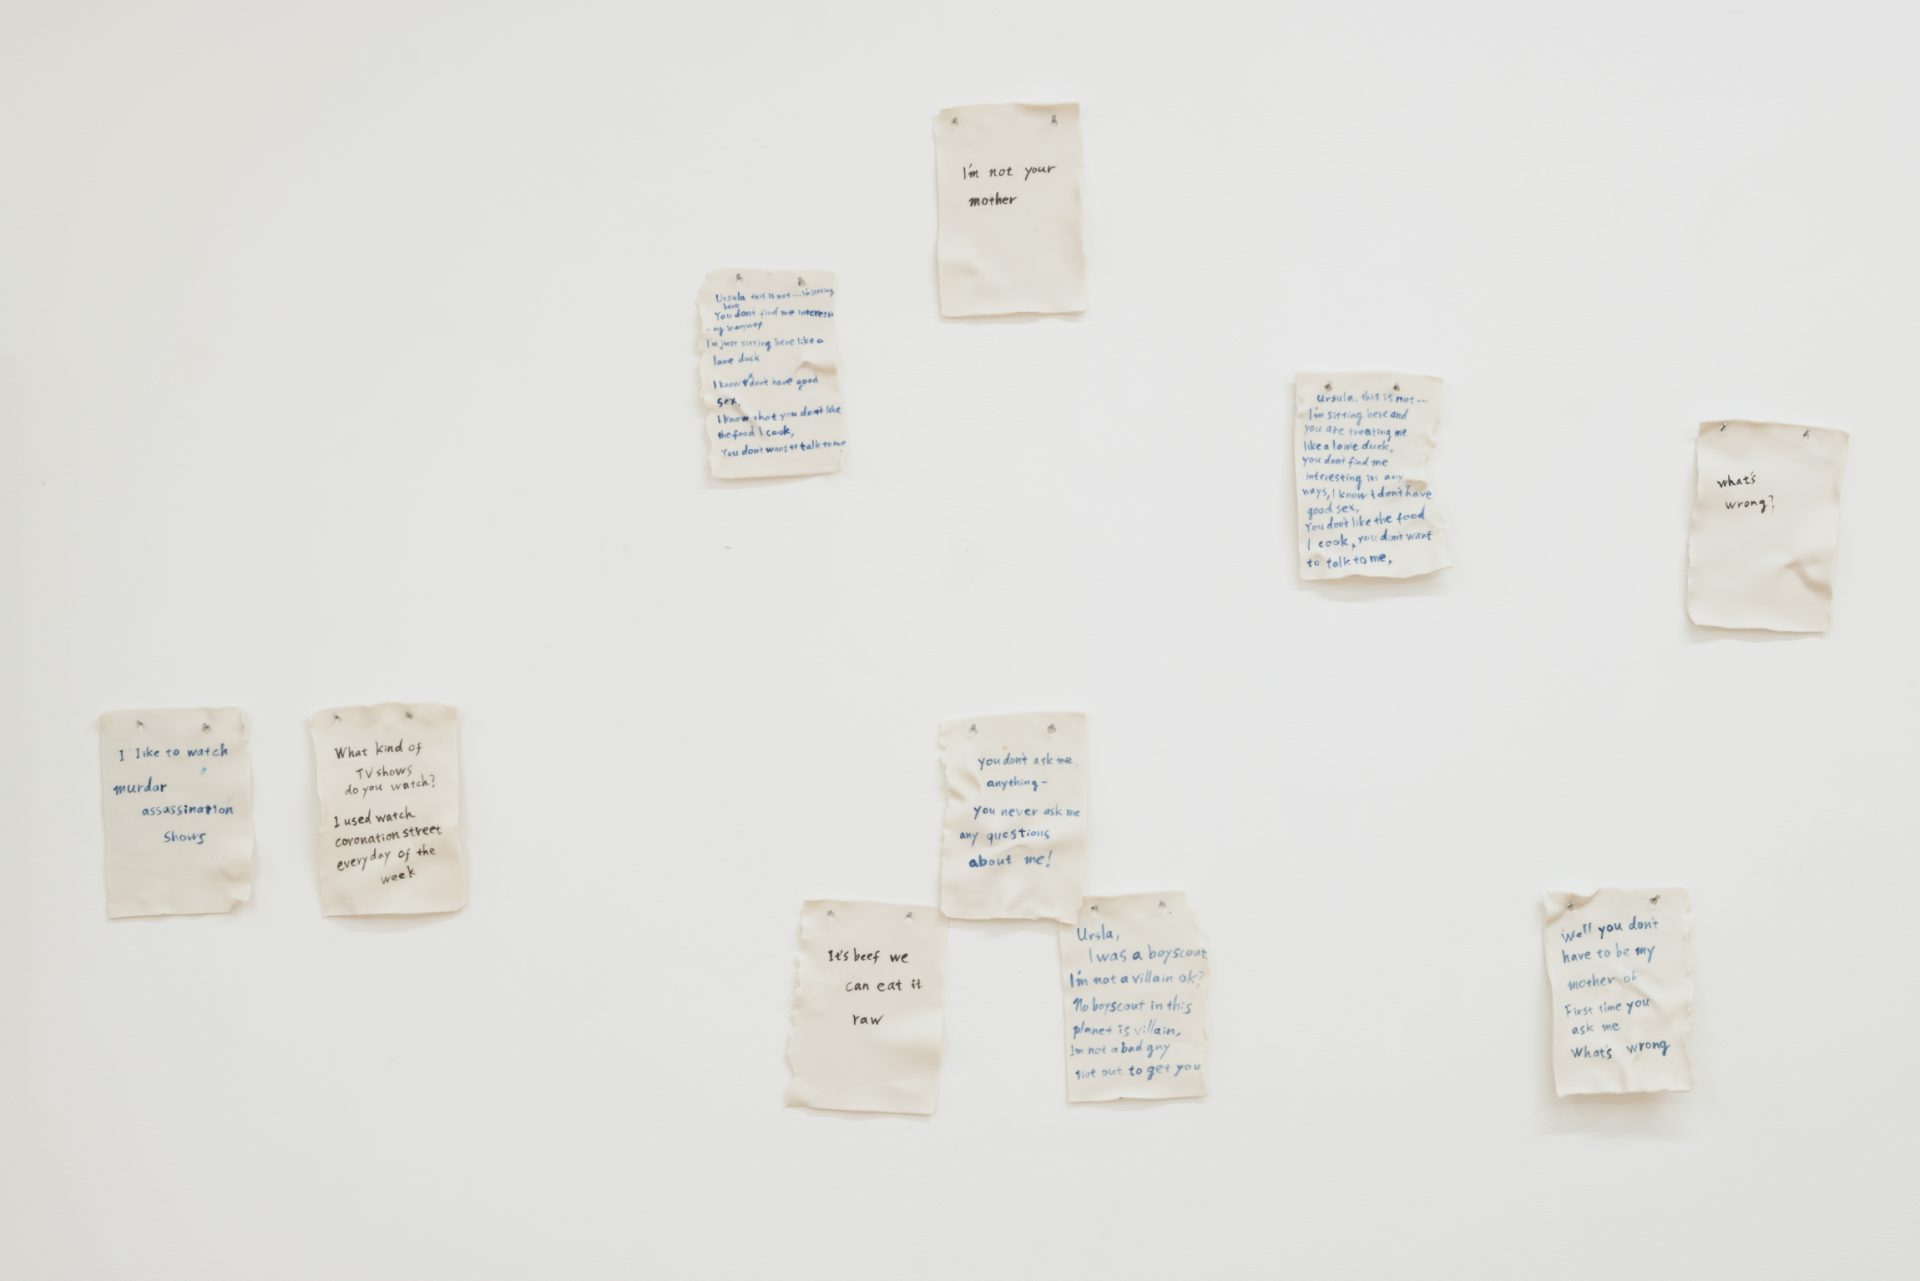 I'm not your
mother
Ursula this is not... I'm sitting
here
You dont find me interesti
-ng in anyway
I'm just sitting here like a
lame duck
I know I don't have good
sex,
I know that you don't like
the food I cook,
You don't want to talk to me
Ursula, this is not...
I'm sitting here and
you are treating me
like a lame duck,
you don't find me
interesting in any
ways, I know I don't have
good sex,
You don't like the food
I cook, you don't want
to talk to me,
what's
wrong?
I like to watch
murdar
assassination
shows
What kind of
TV shows
do you watch?
I used watch
coronation street
everyday of the
week
you don't ask me
anything-
you never ask me
any questions
about me!
It's beef we
can eat it
raw
Ursla,
I was a boyscout
I'm not a villain ok?
No boyscout in this
planet is villain,
I'm not a bad guy
not out to get you
Well you don't
have to be my
mother ok
First time you
ask me
What's wrong